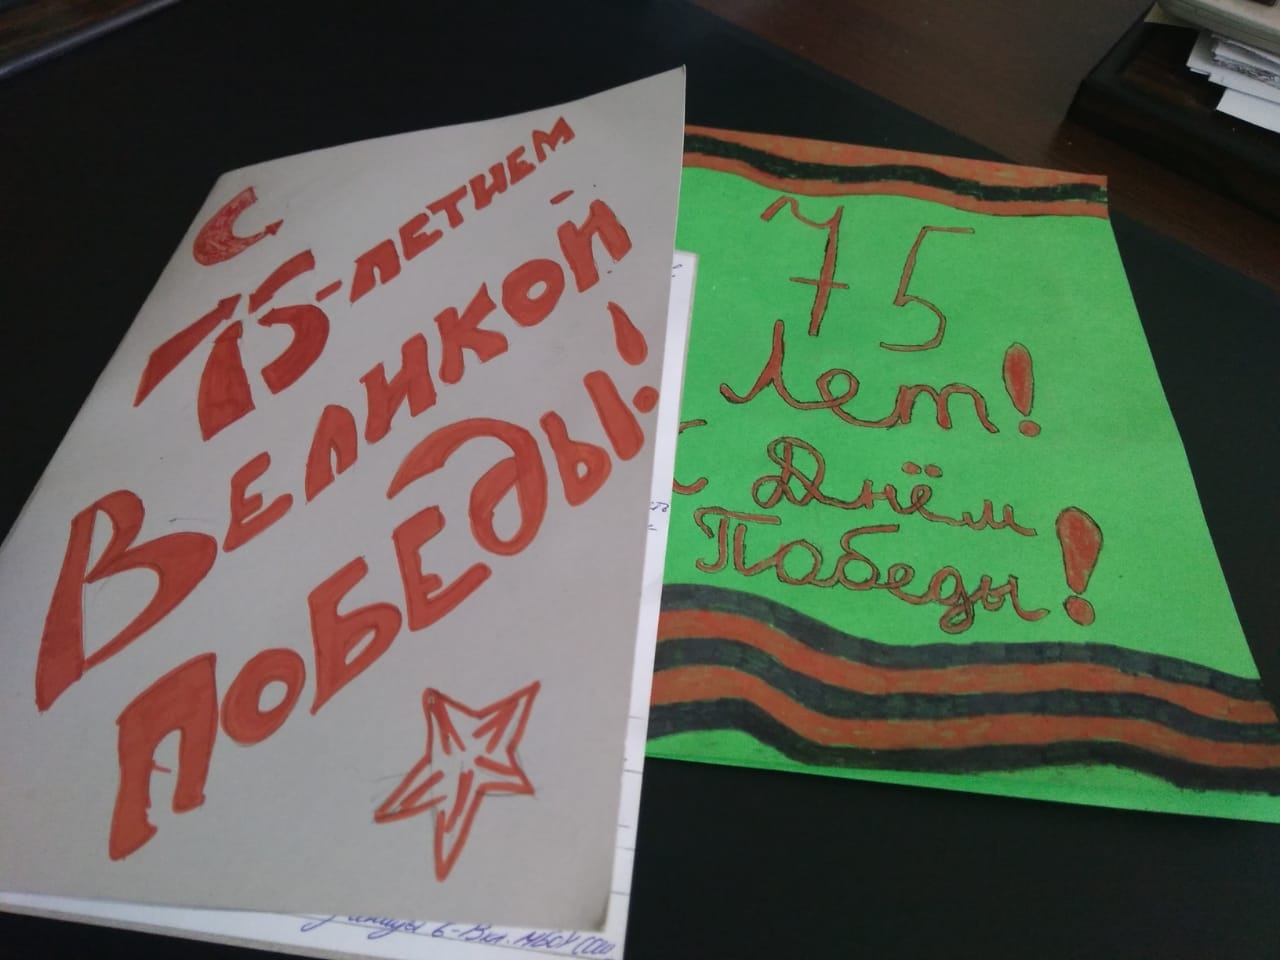 С
75-ЛЕТИЕМ
ВЕЛИКОЙ
ПОБЕДЫ!
75
Лет!
С Днём
Победы!
6-В кл. МБОУ СОШ